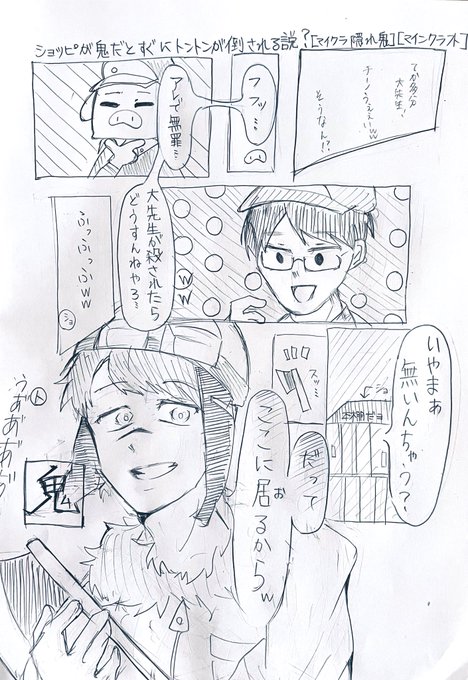 ショッピが鬼だとすぐにトントンが倒される説?[マイクラ隠れ鬼][マインクラフト]
てか多分
大先生、
チーノうぇぇいww
そうなん!?
フフッ…
アレで無罪…
大先生が殺されたら
どうすんねやろ?
ww
ふっふっふっふww
ショ
いやまぁ
無いんちゃう?
ショ
本棚だヨ
スッ…
だって
ここに居(お)るからw
鬼
人
うぁあ゙あ゙あ゙